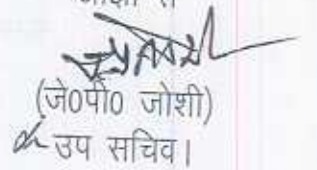 (जे०पी० जोशी)
उप सचिव।